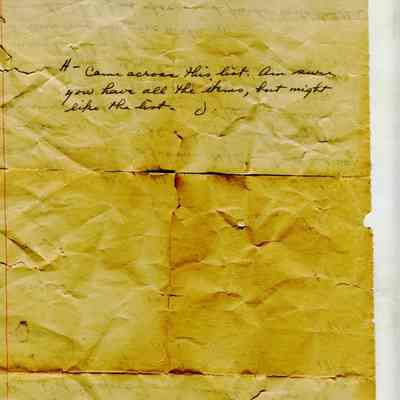 H- Came across this list. Am sure
you have all the items, but might
like the list. J.